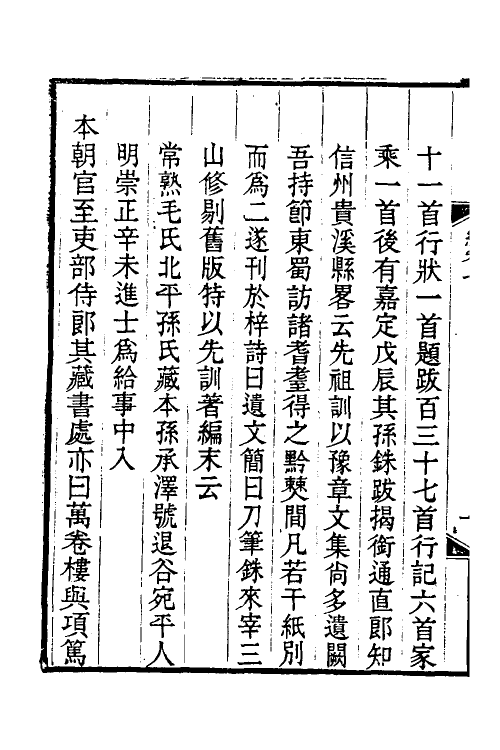 十一首行狀一首題跋百三十七首行記六首家
乘一首後有嘉定戊辰其孫銖跋揭銜通直郎知
信州貴溪縣畧云先祖訓以豫章文集尚多遺闕
吾持節東蜀訪諸耆耋得之黔僰間凡若干紙別
而為二遂刊於梓詩曰遺文簡曰刀筆銖來宰三
山修剔舊版特以先訓著編末云
常熟毛氏北平孫氏藏本孫承澤號退谷宛平人
明崇正辛未進士為給事中入
本朝官至吏部侍郎其藏書處亦曰萬卷樓與項篤